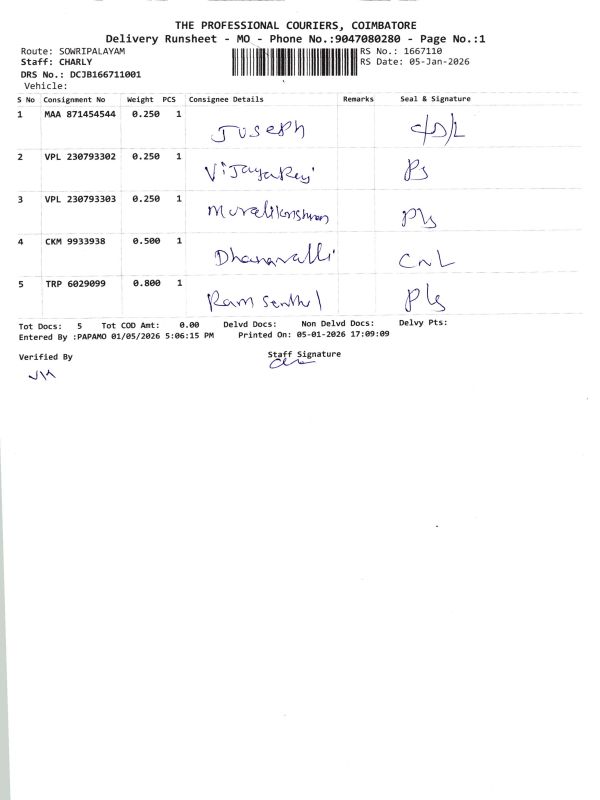 THE PROFESSIONAL COURIERS, COIMBATORE
Delivery Runsheet - MO - Phone No.:9047080280 - Page No.:1
Route: SOWRIPALAYAM RS No.: 1667110
Staff: CHARLY RS Date: 05-Jan-2026
DRS No.: DCJB166711001
Vehicle:
S No Consignment No Weight PCS Consignee Details Remarks Seal & Signature
1 MAA 871454544 0.250 1 Juseph
2 VPL 230793302 0.250 1
3 VPL 230793303 0.250 1 Muralikrishnan
4 CKM 9933938 0.500 1 Dhanavalli
5 TRP 6029099 0.800 1 Ram Senthil
Tot Docs: 5 Tot COD Amt: 0.00 Delvd Docs: Non Delvd Docs: Delvy Pts:
Entered By :PAPAMO 01/05/2026 5:06:15 PM Printed On: 05-01-2026 17:09:09
Verified By Staff Signature